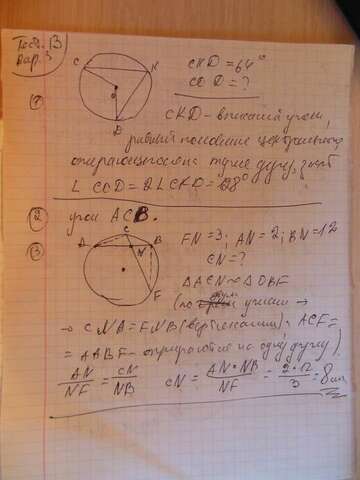 Тест. 13
Вар. 3
C
K
O
D
CKD = 64°
COD = ?
①
CKD - вписанный угол,
равный половине центрального
опирающегося на ту же дугу, значит
∠ COD = 2∠CKD = 128°
② угол ACB.
③
A
C
B
N
F
FN = 3; AN = 2; BN = 12
CN = ?
(по углам →
→ CNA = FNB (вертикальные), ACF =
= ABF - опираются на одну дугу)
AN/NF = CN/NB CN = AN•NB/NF = 2•12/3 = 8